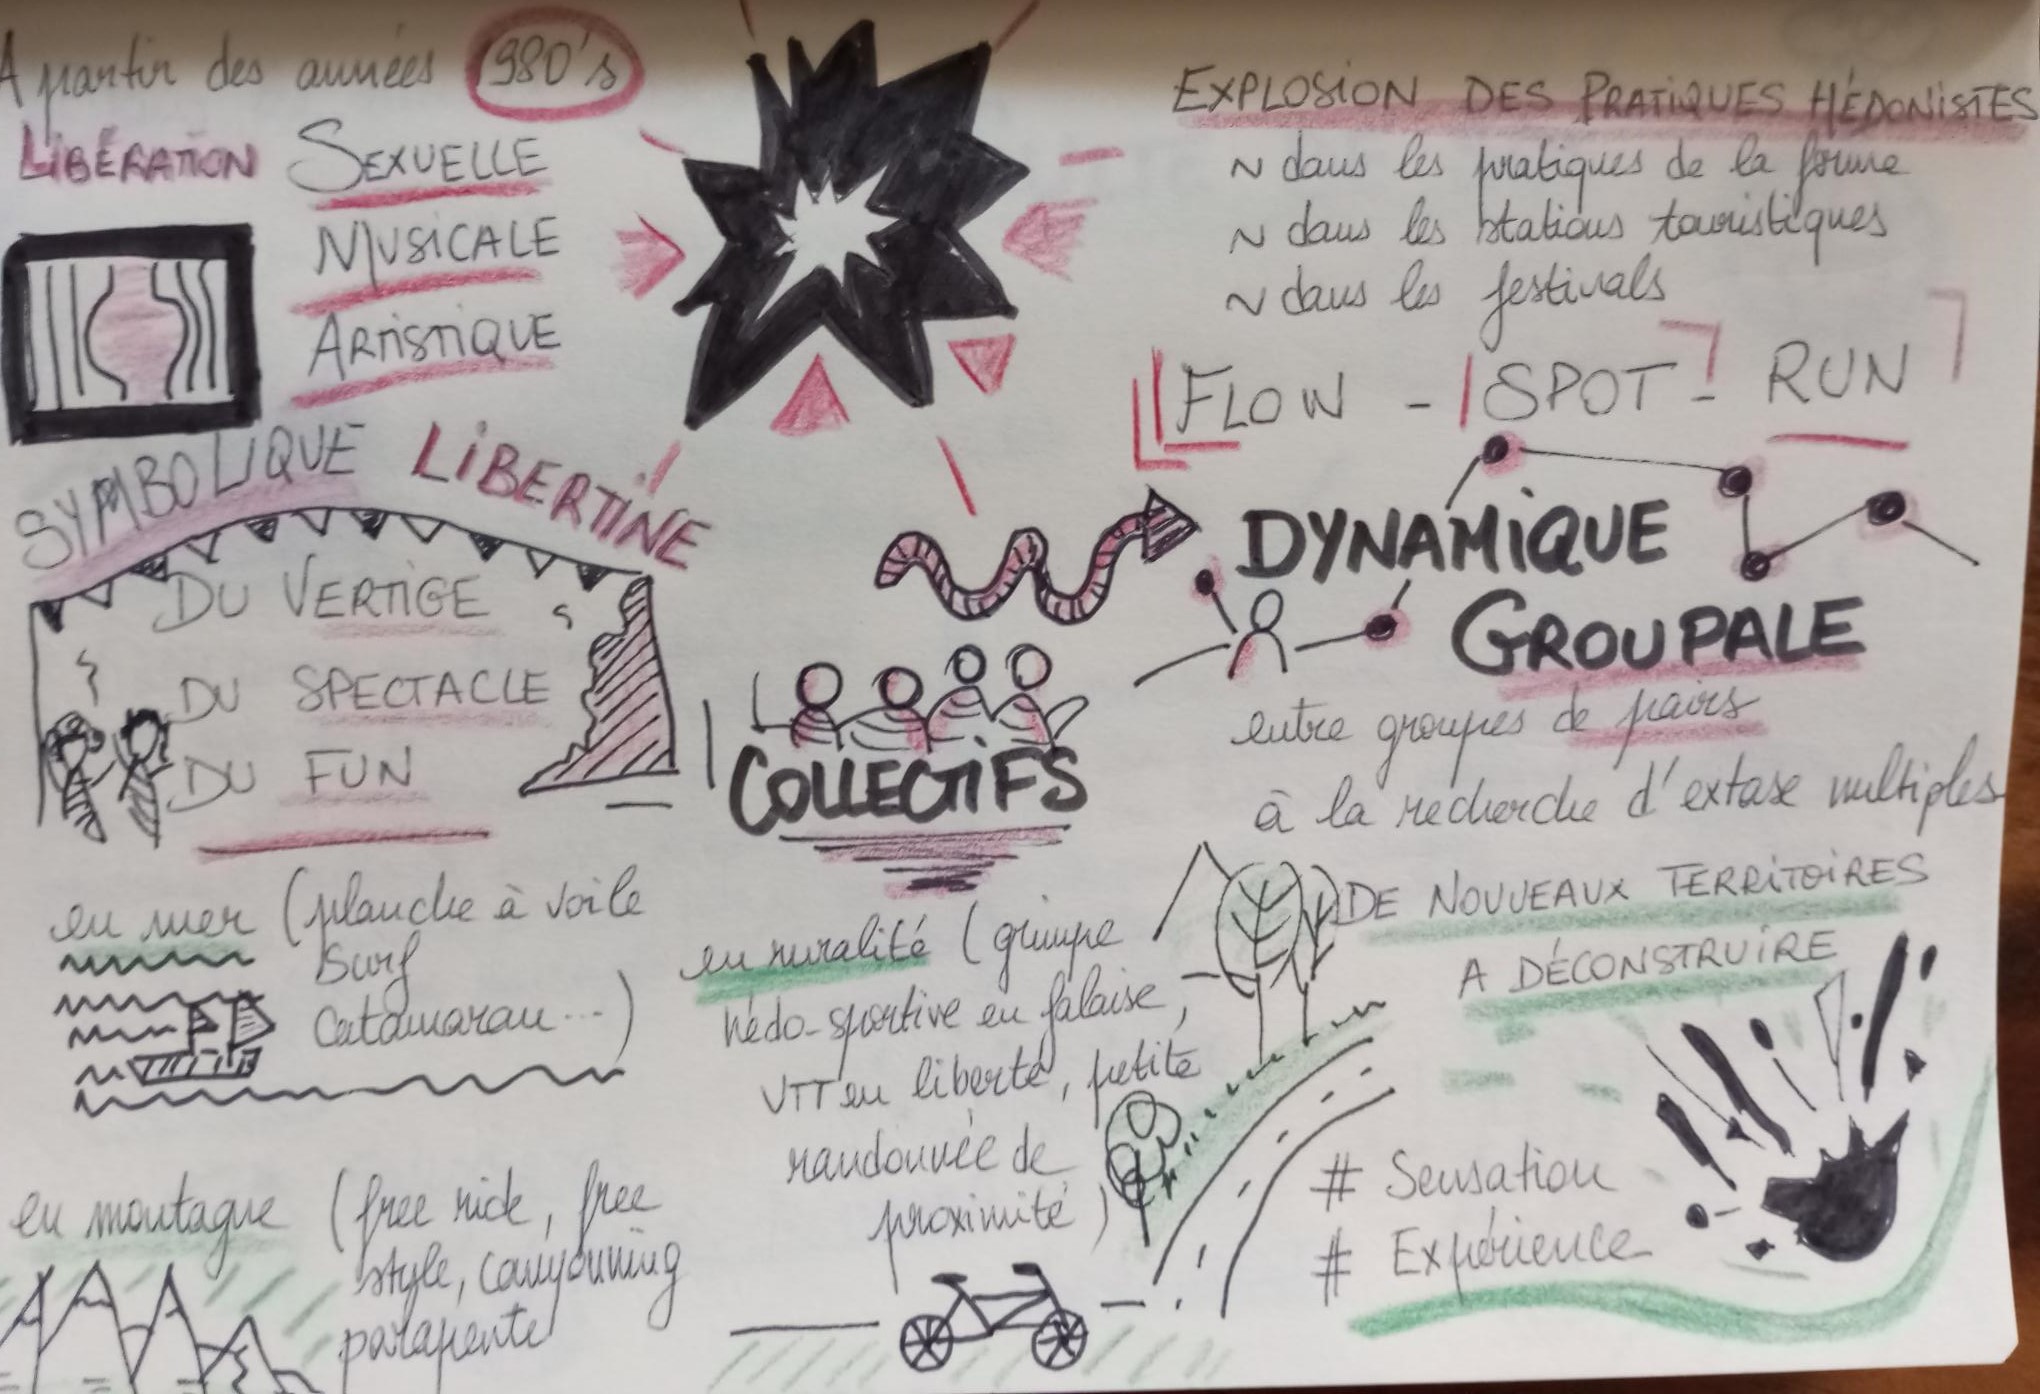 A partir des années 1980's
LIBÉRATION SEXUELLE
MUSICALE
ARTISTIQUE
EXPLOSION DES PRATIQUES HÉDONISTES
~ dans les pratiques de la forme
~ dans les stations touristiques
~ dans les festivals
FLOW - SPOT - RUN
SYMBOLIQUE LIBERTINE
DU VERTIGE
DU SPECTACLE
DU FUN
COLLECTIFS
DYNAMIQUE
GROUPALE
entre groupes de pairs
à la recherche d'extase multiples
en mer (planche à voile
Surf
Catamaran...)
en ruralité (grimpe
hédo-sportive en falaise,
VTT en liberté, petite
randonnée de
proximité)
DE NOUVEAUX TERRITOIRES
A DÉCONSTRUIRE
# Sensation
# Expérience
en montagne (free ride, free
style, canyonning
parapente